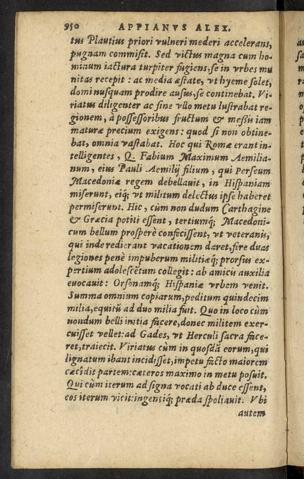 950 APPIANVS ALEX.
tus Plautius priori vulneri mederi accelerans,
pugnam commisit. Sed victus magna cum ho-
minum iactura turpiter fugiens, se in vrbes mu
nitas recepit: ac media æstate, vt hyeme solet,
domi nusquam prodire ausus, se continebat. Vi-
riatus diligenter ac sine vllo metu lustrabat re-
gionem, à possessoribus fructum & messiū iam
maturæ precium exigens: quod si non obtine-
bat, omnia vastabat. Hoc qui Romæ erant in-
telligentes, Q. Fabium Maximum Aemilia-
num, eius Pauli Aemilij filium, qui Perseum
Macedoniæ regem debellauit, in Hispaniam
miserunt, eiq́; vt militum delectus ipse haberet
permiserunt. Hic, cùm non dudum Carthagine
& Græcia potiti essent, tertiumq́; Macedoni-
cum bellum prosperè confecissent, vt veteranis,
qui inde redierant vacationem daret, fire duas
legiones penè impuberum militiæq́; prorsus ex-
pertium adolescētum collegit: ab amicis auxilia
euocauit: Orsonamq́; Hispaniæ vrbem venit.
Summa omnium copiarum, peditum quindecim
milia, equitū ad duo milia fuit. Quo in loco cùm
nondum belli initia facere, donec militem exer-
cuisset vellet: ad Gades, vt Herculi sacra face-
ret, traiecit. Viriatus cùm in quosdā eorum, qui
lignatum ibant incidisset, impetu facto maiorem
cæcidit partem: cæteros maximo in metu posuit.
Qui cùm iterum ad signa vocati ab duce essent,
eos iterum vicit: ingentiq́; præda spoliauit. Vbi
autem